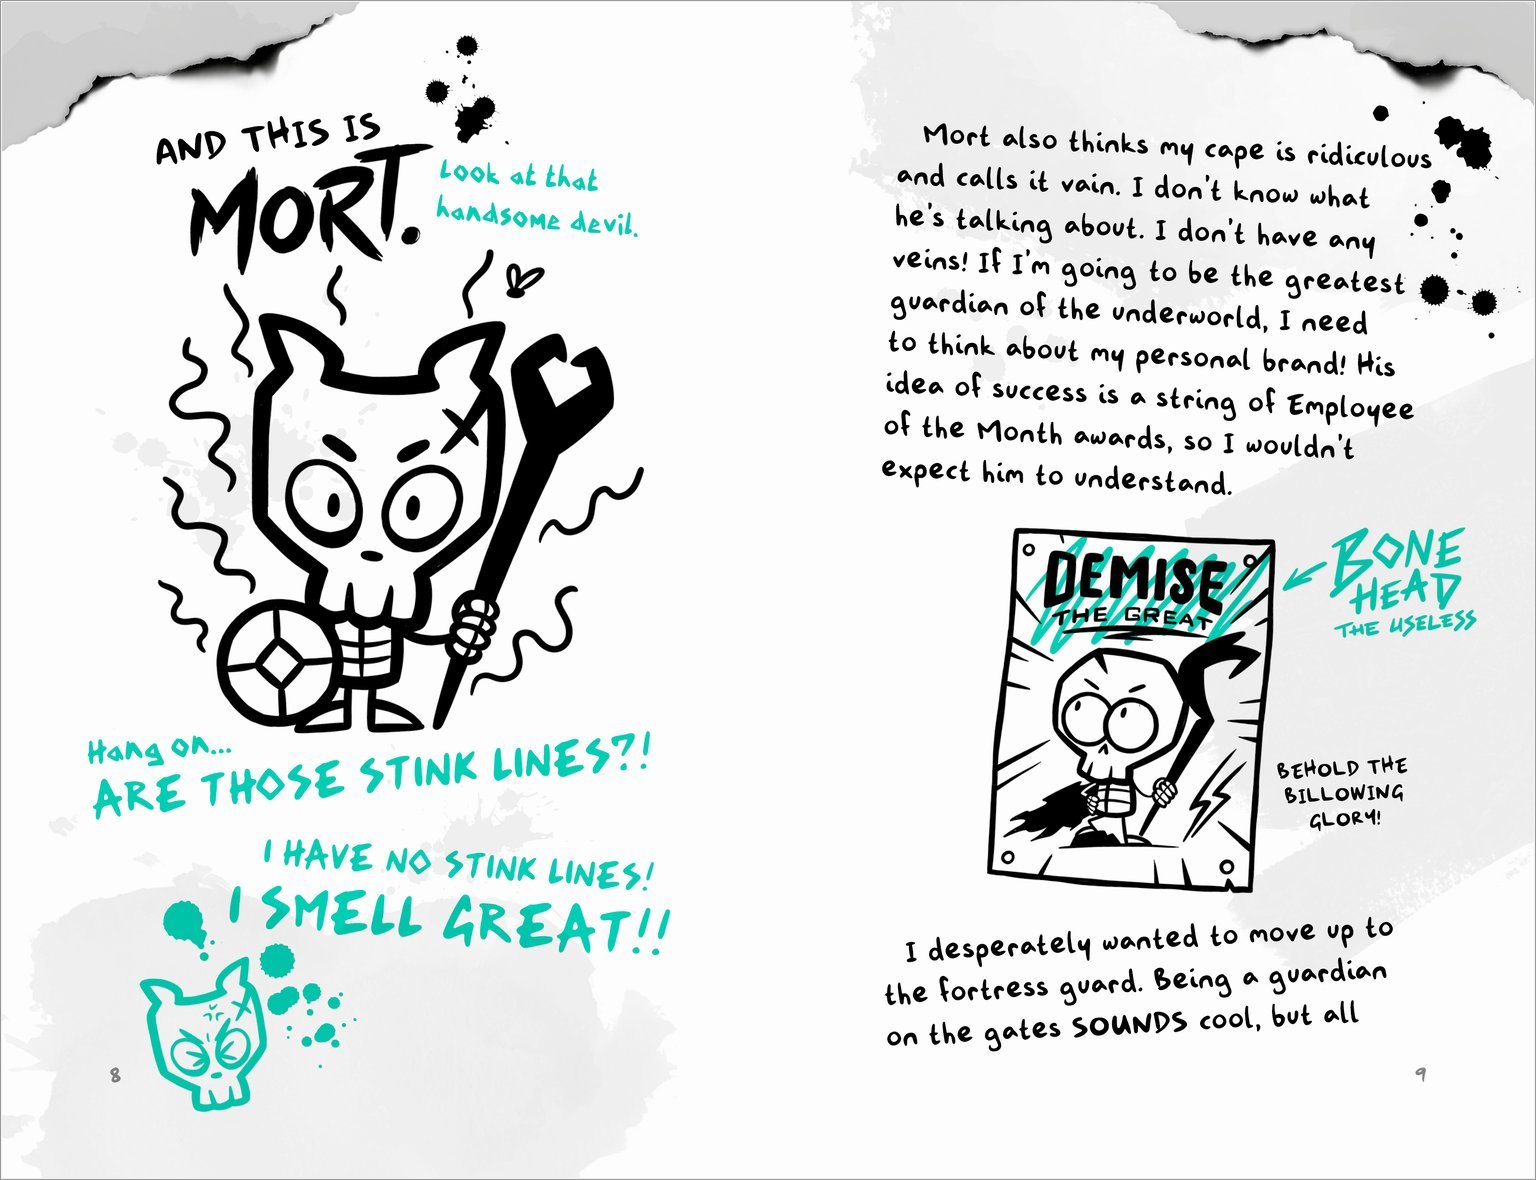 AND THIS IS
MORT.
Look at that
handsome devil.
Hang on...
ARE THOSE STINK LINES?!
I HAVE NO STINK LINES!
I SMELL GREAT!!
8
Mort also thinks my cape is ridiculous
and calls it vain. I don't know what
he's talking about. I don't have any
veins! If I'm going to be the greatest
guardian of the underworld, I need
to think about my personal brand! His
idea of success is a string of Employee
of the Month awards, so I wouldn't
expect him to understand.
DEMISE
THE GREAT
BONE
HEAD
THE USELESS
BEHOLD THE
BILLOWING
GLORY!
I desperately wanted to move up to
the fortress guard. Being a guardian
on the gates SOUNDS cool, but all
9